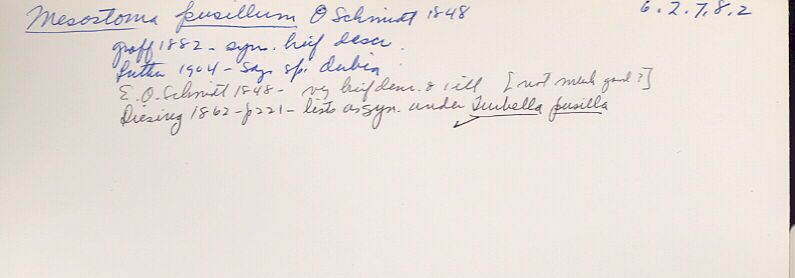 Mesostoma pusillum O Schmidt 1848 6.2.7.8.2
Graff 1882 - syn. brief descr.
Luther 1904 - Says sp. dubia
E. O. Schmidt 1848 - very brief descr. & ill [not much good?]
Diesing 1862 - p221 - lists as syn. under Turbella pusilla